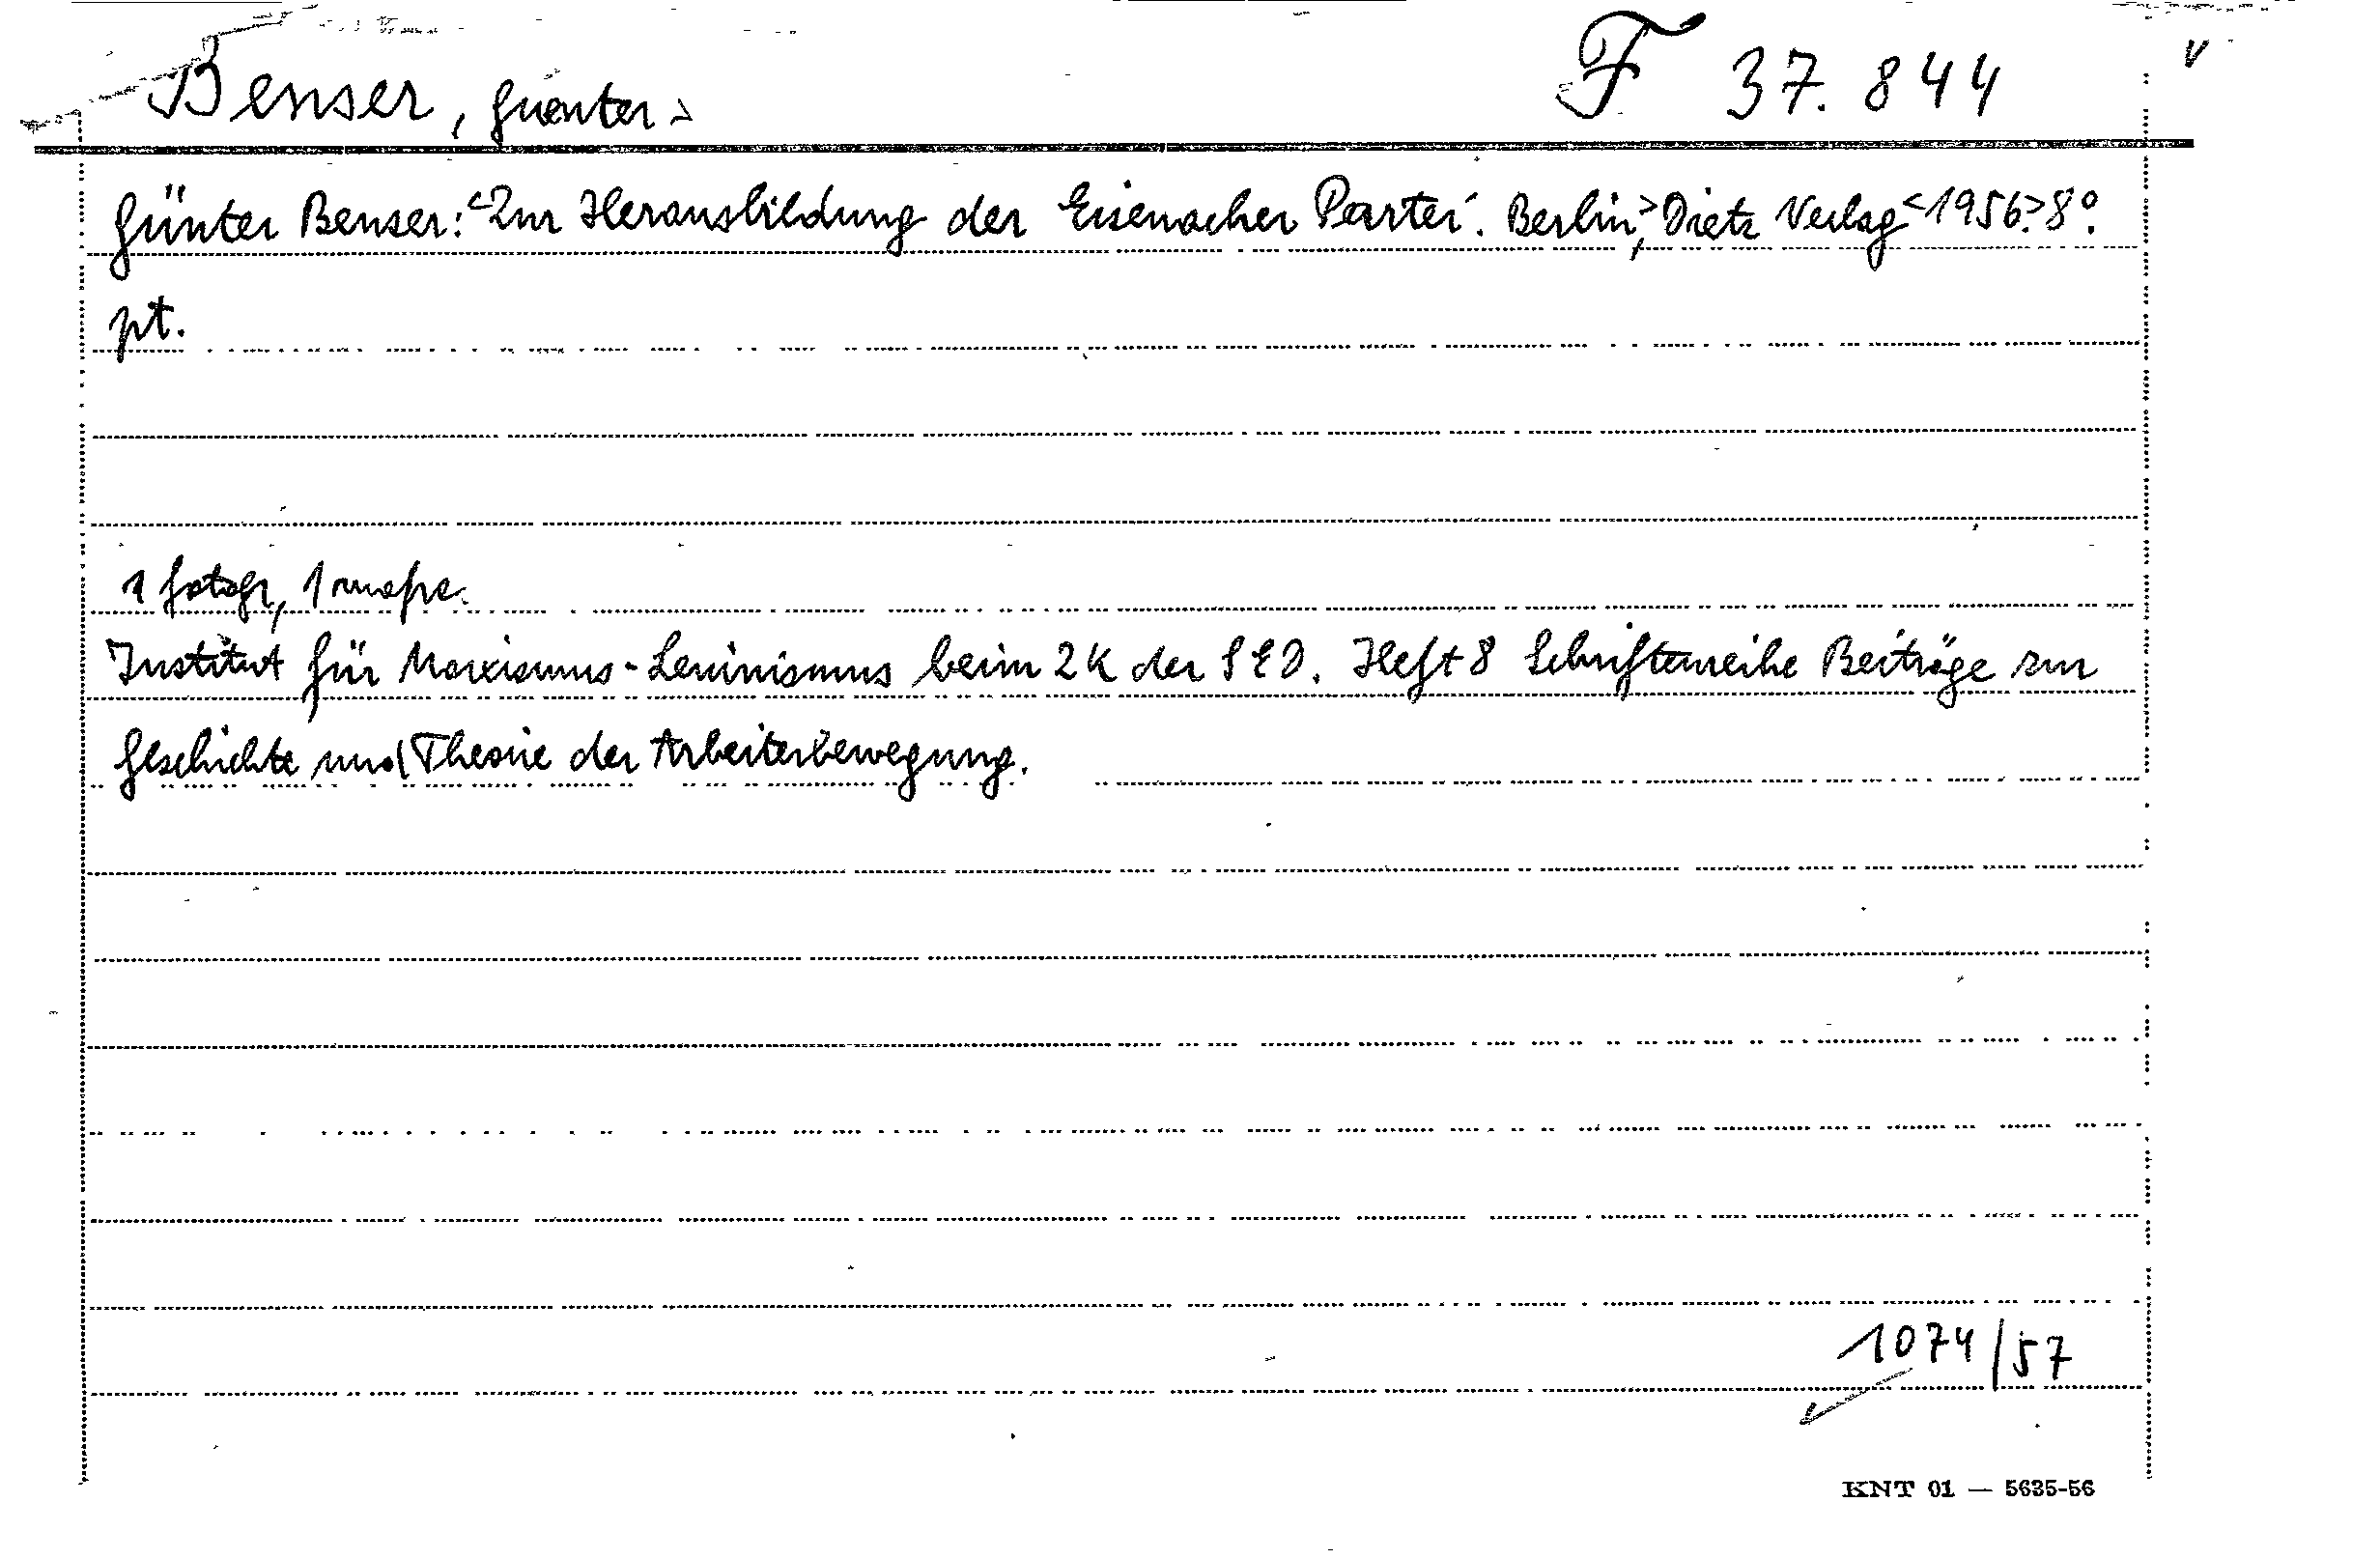 Benser, Guenter F 37.844
Günter Benser: <Zur Herausbildung der Eisenacher Partei. Berlin,> Dietz Verlag <1956.> 8°.
pt.
1 fotogr, 1 mapa.
Institut für Marxismus-Leninismus beim ZK der SED. Heft 8 Schriftenreihe Beiträge zur
Geschichte und Theorie der Arbeiterbewegung.
1074/57
KNT 01 — 5635-56